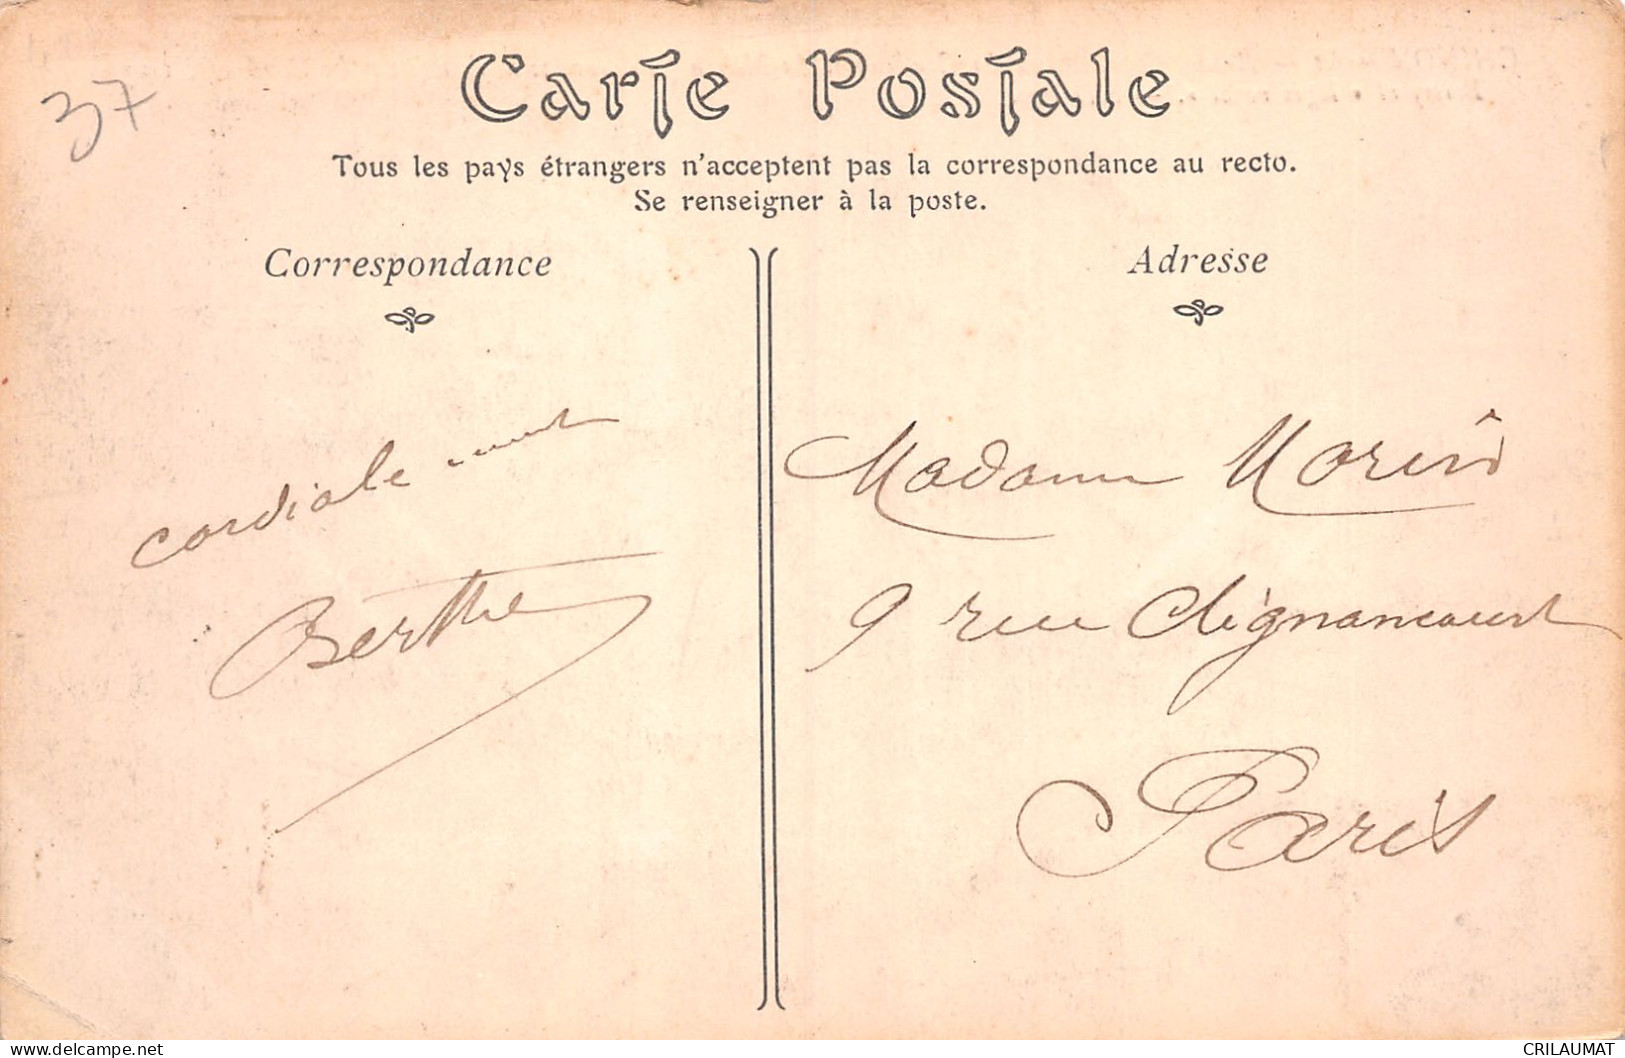 37
Carte Postale
Tous les pays étrangers n'acceptent pas la correspondance au recto.
Se renseigner à la poste.
Correspondance
Adresse
cordialement
Berthe
Madame Morin
9 rue Clignancourt
Paris
CRILAUMAT